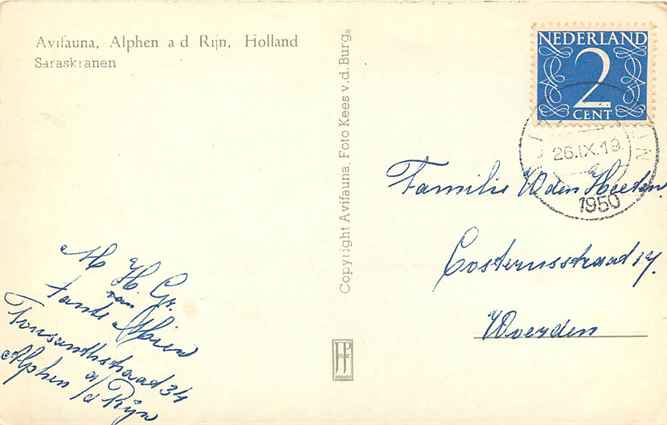 Avifauna, Alphen a d Rijn, Holland
Saraskranen
Copyright Avifauna, Foto Kees v.d. Burg.
NEDERLAND
2
CENT
26.IX.19
1950
Familie v d Heeden
Oosterusstraat 17.
Woerden
M H. Gr.
van
Tante Marien
straat 34
Alphen a/d Rijn